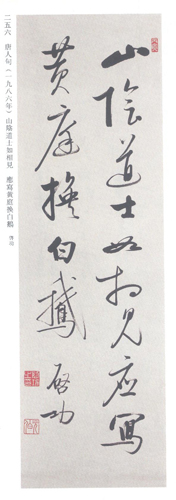 二五六　唐人句（一九八六年）山陰道士如相見　應寫黃庭換白鵝
山陰道士如相見應寫
黃庭換白鵝 啓功